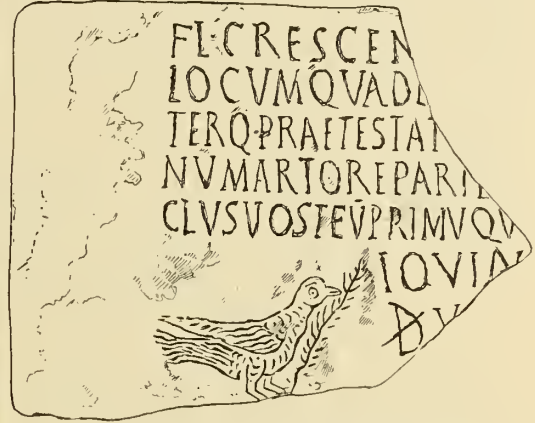 FL·CRESCEN
LOCVMQVADL
TERQ·PRAETESTAT
NVMARTOREPARI
CLVSVOSTEV̄PRIMVQV
IQVIN